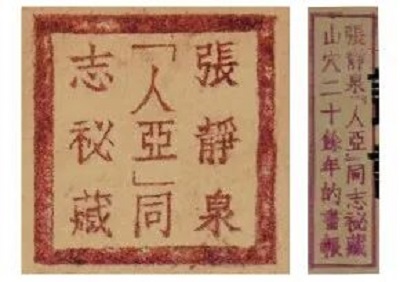 張靜泉
「人亞」同
志秘藏
張靜泉「人亞」同志秘藏
山穴二十餘年的書報